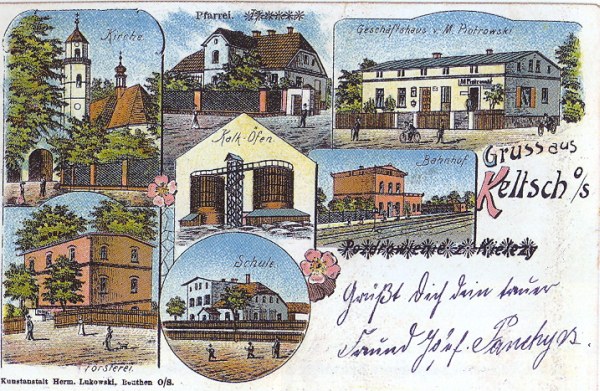 Kirche
Pfarrei.
Geschäftshaus v. M. Piotrowski
M. Piotrowski
Kalk-Öfen
Bahnhof.
Gruss aus
Keltsch o/S
Schule.
Försterei.
Grüßt Dich dein
Josef
Kunstanstalt Herm. Lukowski, Beuthen O/S.